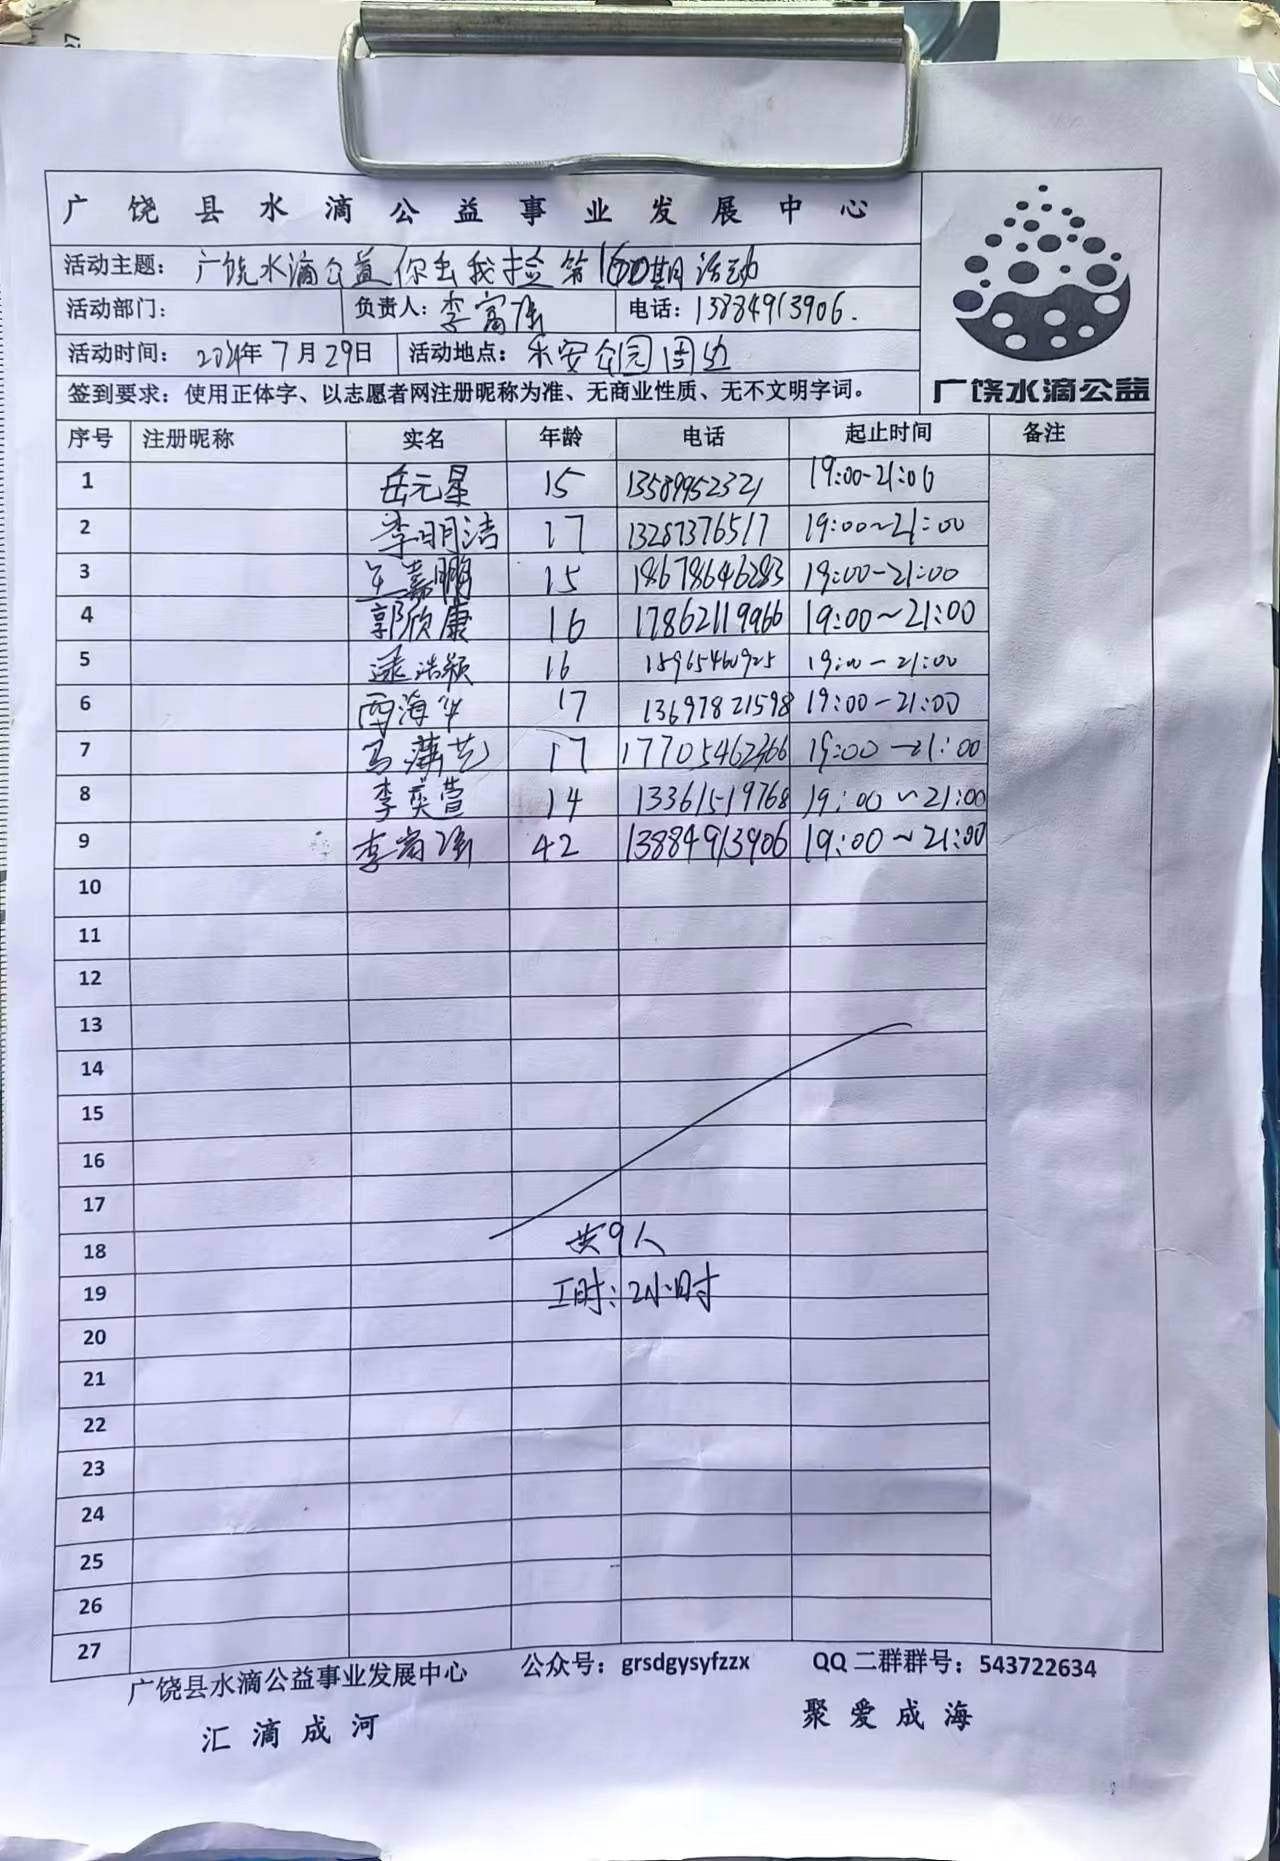 广饶县水滴公益事业发展中心
活动主题：广饶水滴公益你丢我捡第160期活动
活动部门： 负责人：李富强 电话：13884913906.
活动时间：2024年7月29日 活动地点：乐安公园周边
广饶水滴公益
签到要求：使用正体字、以志愿者网注册昵称为准、无商业性质、无不文明字词。
序号 注册昵称 实名 年龄 电话 起止时间 备注
1 岳元星 15 13589952321 19:00-21:00
2 李明洁 17 13287376517 19:00~21:00
3 王嘉鹏 15 18678646283 19:00-21:00
4 郭欣康 16 17862119966 19:00~21:00
5 浩颖 16 15965460925 19:00-21:00
6 海华 17 13697821598 19:00-21:00
7 马 艺 17 17705462366 19:00-21:00
8 李奕萱 14 13361519768 19:00~21:00
9 李富强 42 13884913906 19:00~21:00
10
11
12
13
14
15
16
17
18 共9人
19 工时：2小时
20
21
22
23
24
25
26
27
广饶县水滴公益事业发展中心 公众号：grsdgysyfzzx QQ二群群号：543722634
汇滴成河 聚爱成海